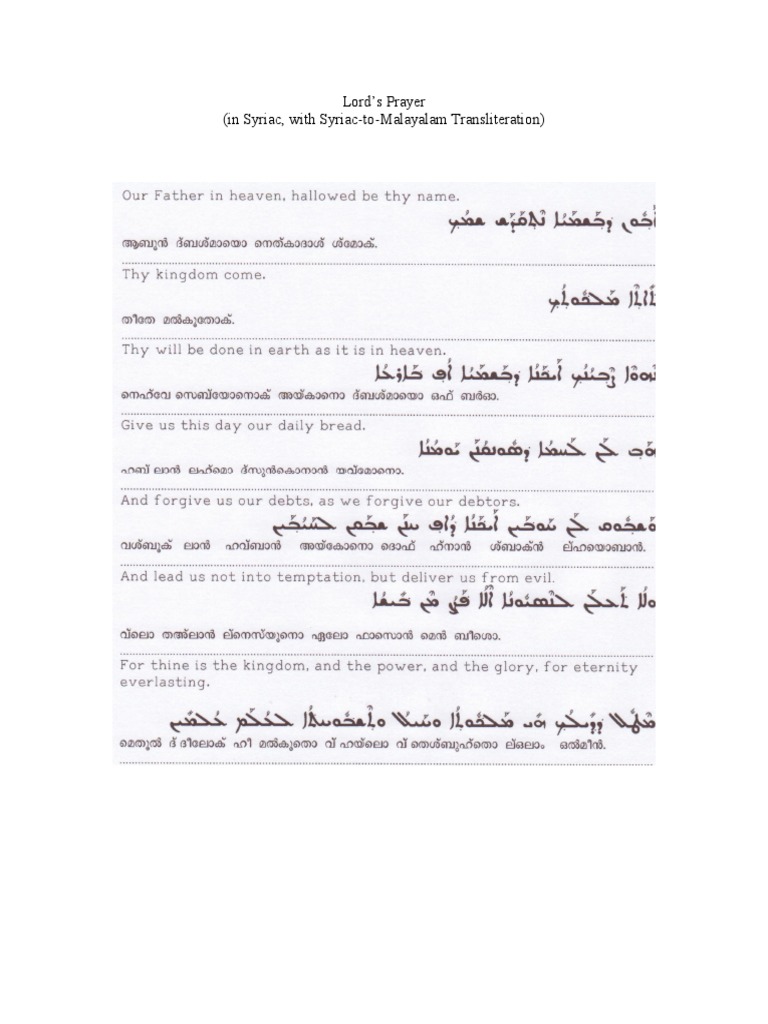 Lord's Prayer
(in Syriac, with Syriac-to-Malayalam Transliteration)
Our Father in heaven, hallowed be thy name.
ܐܰܒܽܘܢ ܕܒܰܫܡܰܝܳܐ ܢܶܬܩܰܕܰܫ ܫܡܳܟ
ആബൂൻ ദ്ബശ്മായൊ നെത്കാദാശ് ശ്മോക്.
Thy kingdom come.
ܬܺܐܬܶܐ ܡܰܠܟܽܘܬܳܟ
തീതേ മൽകുതോക്.
Thy will be done in earth as it is in heaven.
ܢܶܗܘܶܐ ܨܶܒܝܳܢܳܟ ܐܰܝܟܰܢܳܐ ܕܒܰܫܡܰܝܳܐ ܐܳܦ ܒܰܐܪܥܳܐ
നെഹ്‌വേ സെബ്‌യോനൊക് അയ്കാനൊ ദ്ബശ്മായൊ ഒഫ് ബർഓ.
Give us this day our daily bread.
ܗܰܒ ܠܰܢ ܠܰܚܡܳܐ ܕܣܽܘܢܩܳܢܰܢ ܝܰܘܡܳܢܳܐ
ഹബ് ലാൻ ലഹ്മൊ ദ്സുൻകൊനാൻ യവ്മോനൊ.
And forgive us our debts, as we forgive our debtors.
ܘܰܫܒܽܘܩ ܠܰܢ ܚܰܘܒܰܝܢ ܐܰܝܟܰܢܳܐ ܕܳܐܦ ܚܢܰܢ ܫܒܰܩܢ ܠܚܰܝܳܒܰܝܢ
വശ്ബൂക് ലാൻ ഹവ്ബാൻ അയ്കോനൊ ദൊഫ് ഹ്നാൻ ശ്ബാക്ൻ ല്ഹയൊബാൻ.
And lead us not into temptation, but deliver us from evil.
ܘܠܳܐ ܬܰܥܠܰܢ ܠܢܶܣܝܽܘܢܳܐ ܐܶܠܳܐ ܦܰܨܳܢ ܡܶܢ ܒܺܝܫܳܐ
വ്‌ലൊ തഅ്ലാൻ ല്നെസ്‌യുനൊ ഏലോ ഫാസൊൻ മെൻ ബീശൊ.
For thine is the kingdom, and the power, and the glory, for eternity
everlasting.
ܡܶܛܽܠ ܕܕܺܝܠܳܟ ܗܝ ܡܰܠܟܽܘܬܳܐ ܘܚܰܝܠܳܐ ܘܬܶܫܒܽܘܚܬܳܐ ܠܥܳܠܰܡ ܥܳܠܡܺܝܢ
മെതൂൽ ദ് ദീലോക് ഹീ മൽകുതൊ വ് ഹയ്‌ലൊ വ് തെശ്ബുഹ്തൊ ല്ഒലാം ഒൽമീൻ.